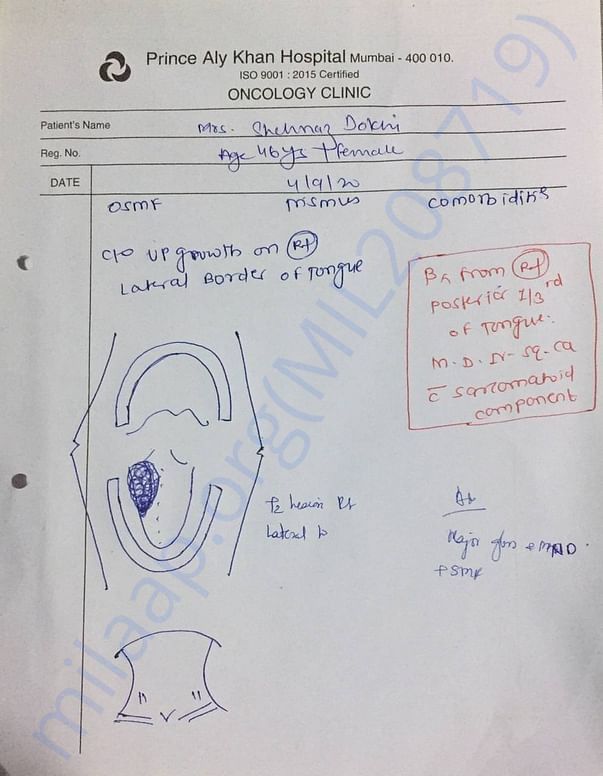 Prince Aly Khan Hospital Mumbai - 400 010.
ISO 9001 : 2015 Certified
ONCOLOGY CLINIC
Patient's Name Mrs. Shehnaz Dokhi
Reg. No. Age 46 ys / female
DATE 4/9/20
OSMF comorbidities
C/o UP growth on Rt
Lateral Border of Tongue
Bx from Rt
Posterior 1/3rd
of Tongue.
M.D. Sq. ca
c̄ sarcomatoid
component
Lesion Rt
Lateral b
Major
milaap.org(MIL208719)